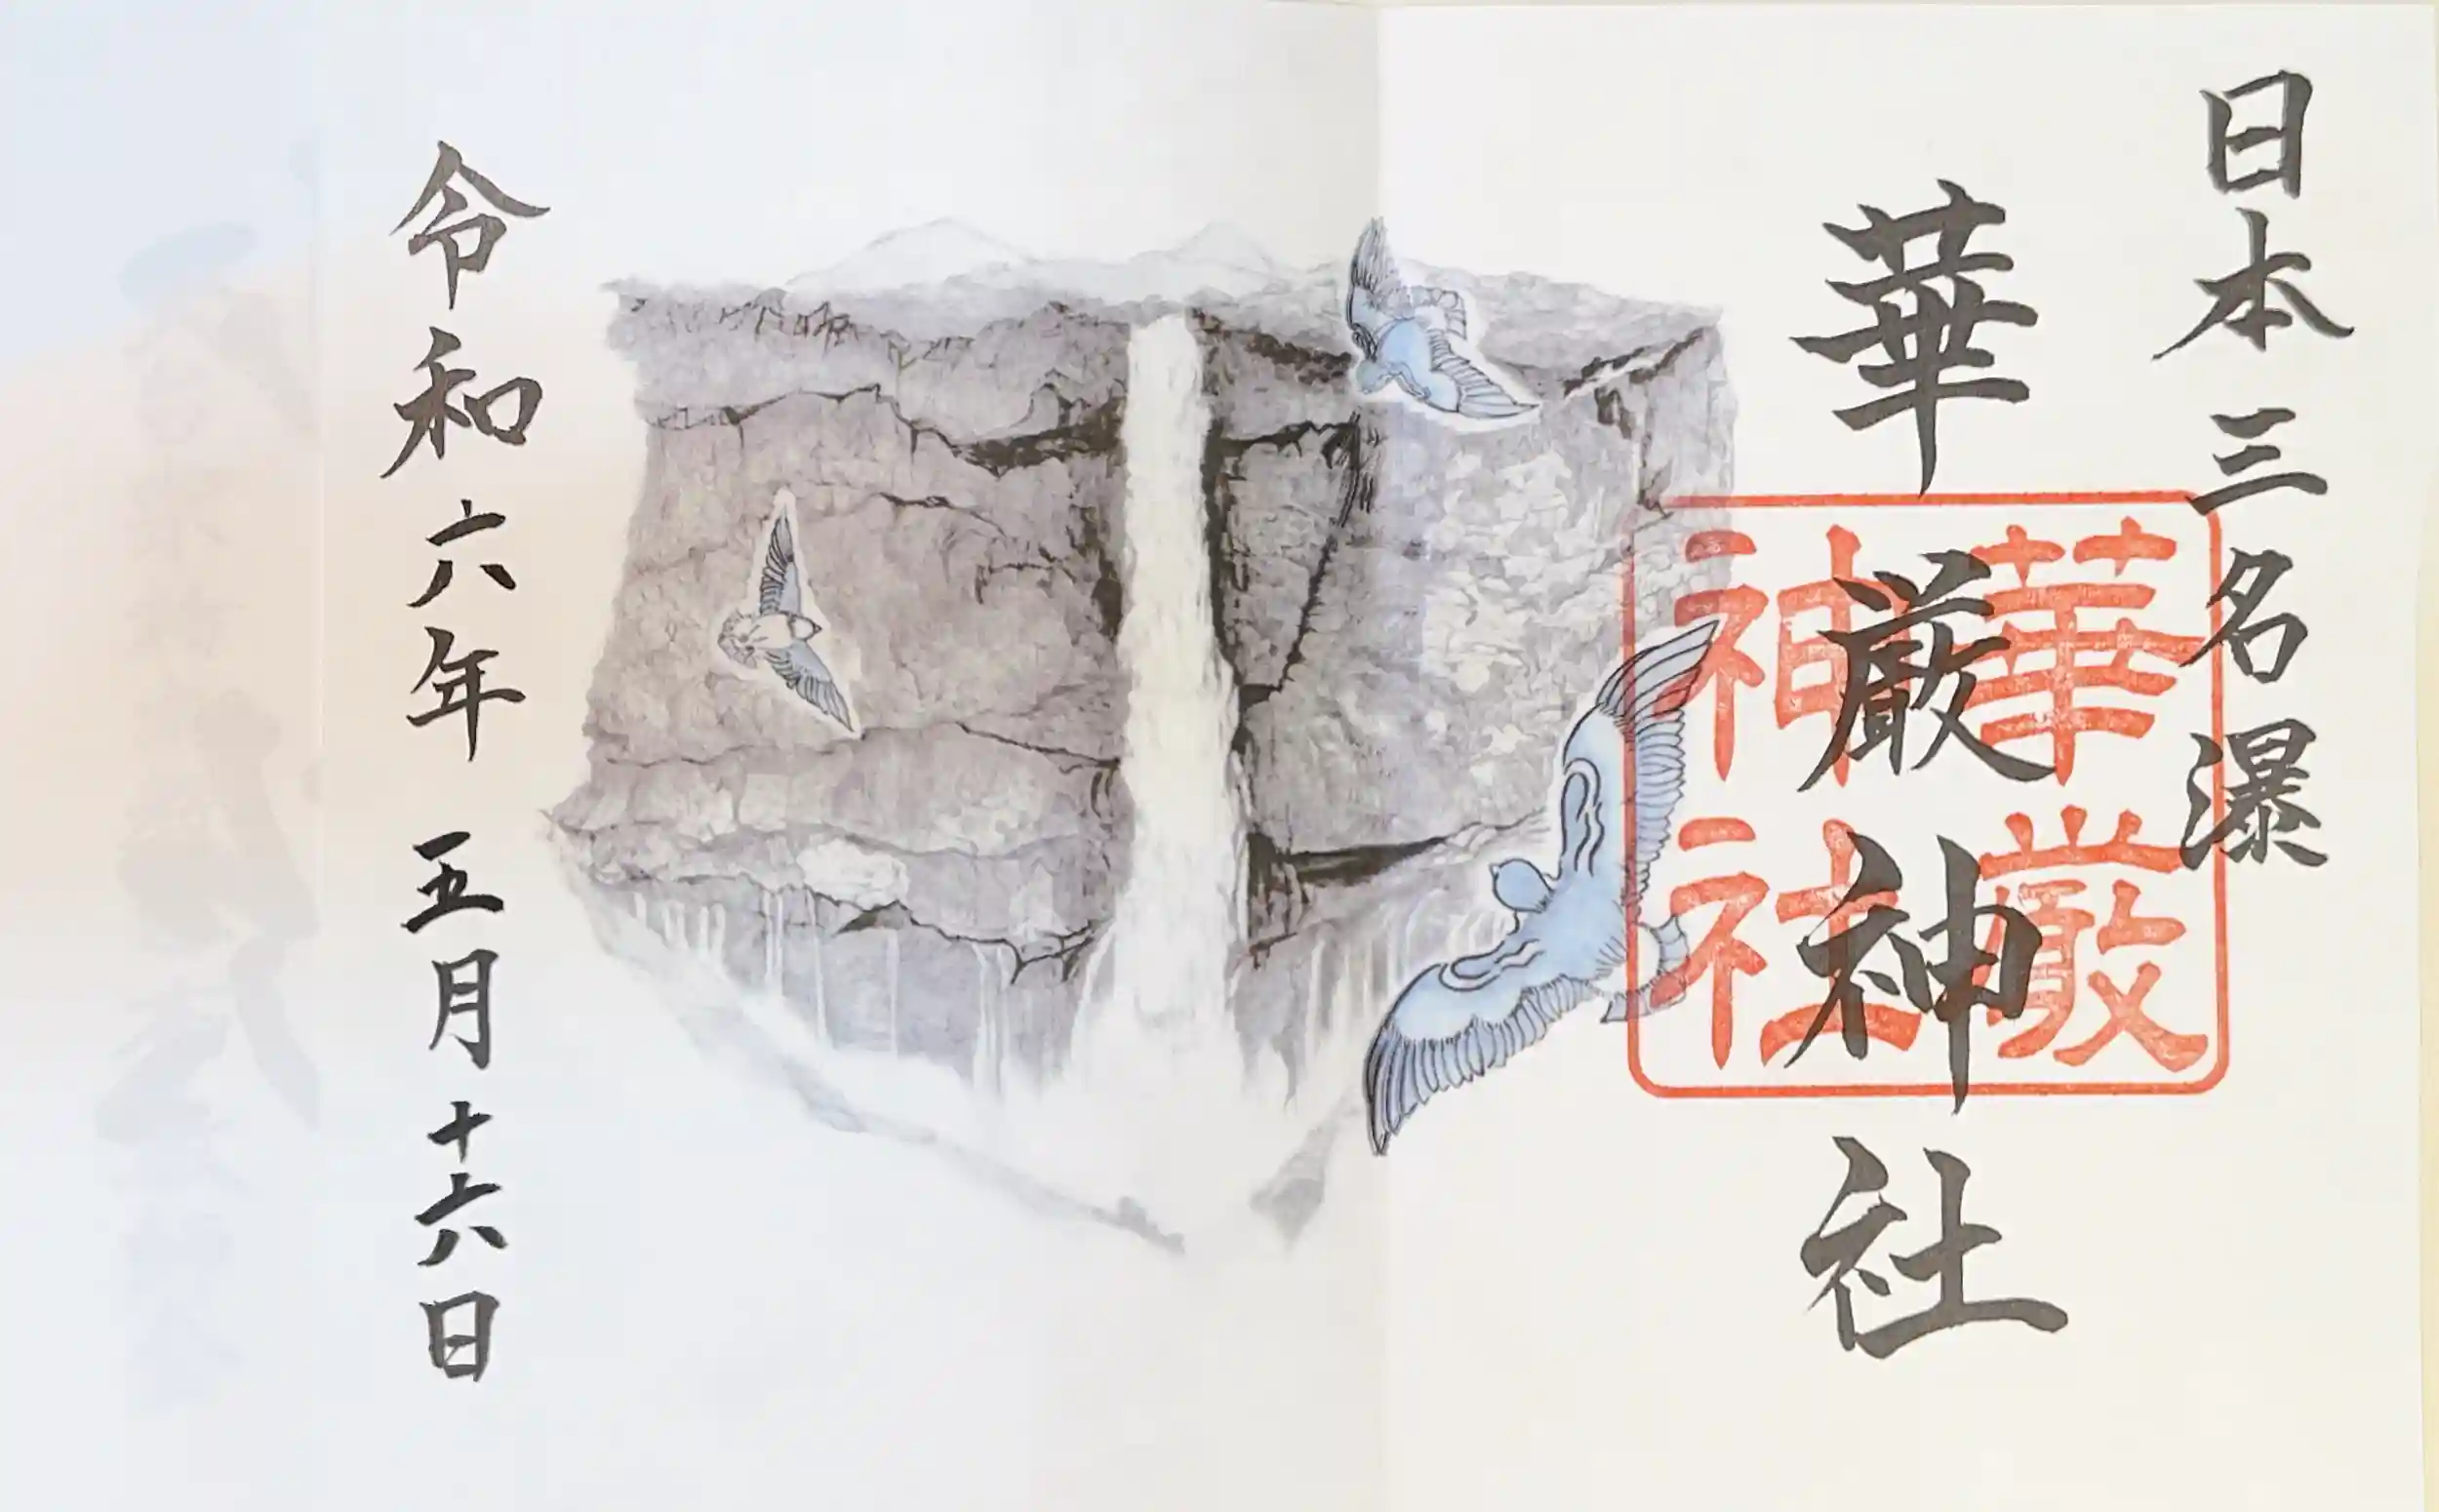 日本三名瀑
華厳神社
華厳
神社
令和六年 五月十六日